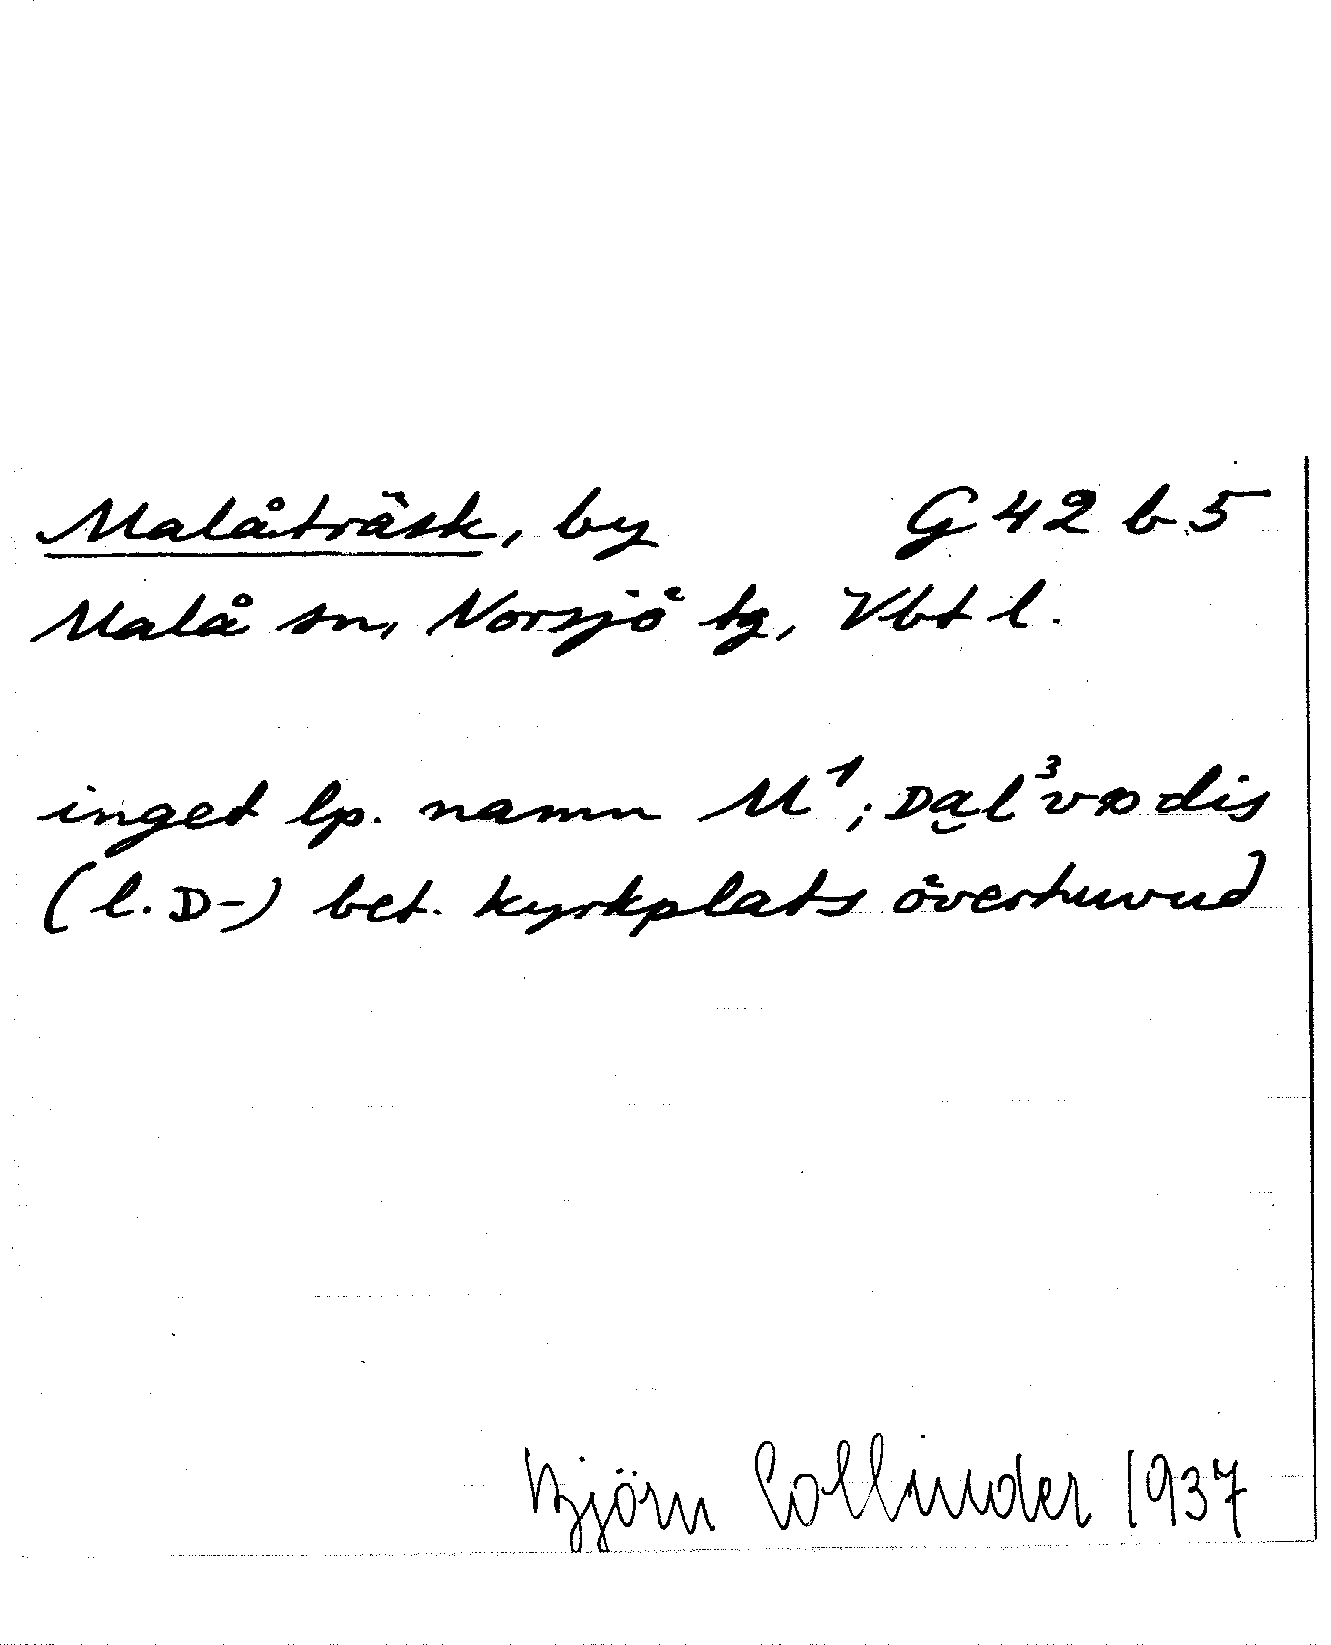 Malåträsk, by G 42 b 5
Malå sn, Norsjö tg, Vbt l.
inget lp. namn M¹; ᴅa̮l³vꝏdis
(l. D-) bet. kyrkplats överhuvud
Björn Collinder 1937